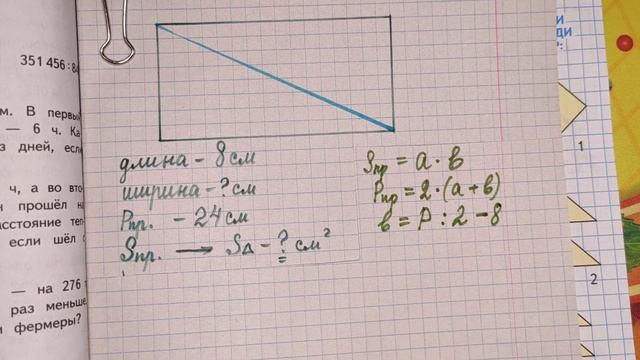 351 456 : 84
м. В первый
— 6 ч. Ка
з дней, если
ч, а во вто
н прошёл на
асстояние теп
если шёл с
— на 276 т
раз меньше
и фермеры?
длина – 8 см
ширина – ? см
Pпр. – 24 см
Sпр. → S∆ – ? см²
Sпр = a · b
Pпр = 2 · (a + b)
b = P : 2 – 8
И
ДИ
1
2